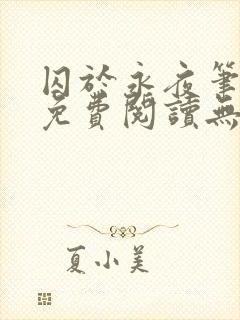 囚於永夜筆
免費閱讀無
夏小美